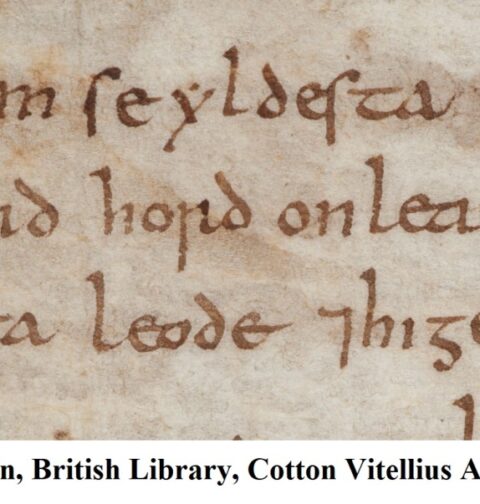 m se yldesta
rd hord onlea
ta leode ⁊hige
n, British Library, Cotton Vitellius A